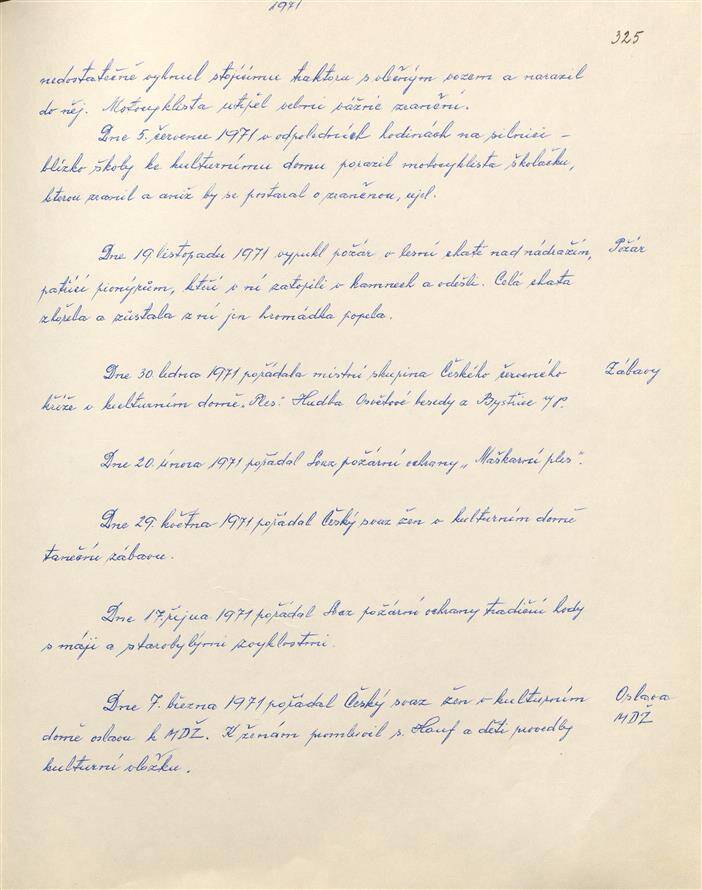 1971
325
nedostatečně vyhnul stojícímu traktoru s vlečným vozem a narazil
do něj. Motocyklista utrpěl velmi vážné zranění.
Dne 5. červenu 1971 v odpoledních hodinách na silnici –
blízko školy ke kulturnímu domu porazil motocyklista školačku,
kterou zranil a aniž by se postaral o zraněnou, ujel.
Dne 19. listopadu 1971 vypukl požár v lesní chatě nad nádražím, Požár
patřící pionýrům, kteří v ní zatopili v kamnech a odešli. Celá chata
shořela a zůstala z ní jen hromádka popela.
Dne 30. ledna 1971 pořádala místní skupina Českého červeného Zábavy
kříže v kulturním domě. Ples: Hudba Osvětové besedy z Bystřice n/P.
Dne 20. února 1971 pořádal Svaz požární ochrany „Maškarní ples".
Dne 29. května 1971 pořádal Český svaz žen v kulturním domě
taneční zábavu.
Dne 17. října 1971 pořádal Svaz požární ochrany tradiční hody
s máji a starobylými zvyklostmi.
Dne 7. března 1971 pořádal Český svaz žen v kulturním Oslava
domě oslavu k MDŽ. K ženám promluvil s. Hauf a děti provedly MDŽ
kulturní vložku.